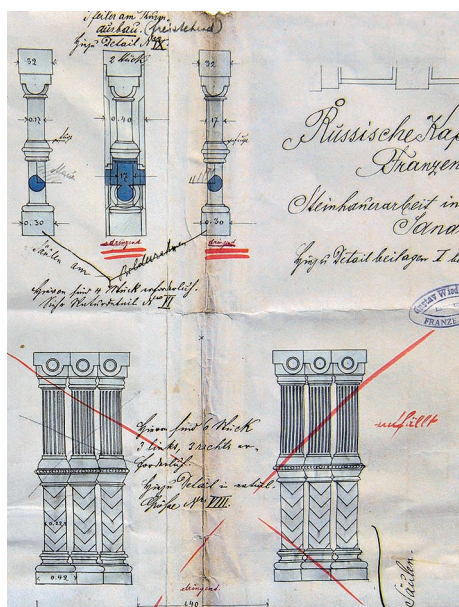 Pfeiler am Thurm-
ausbau. (freistehend)
Hiezu Detail No IX
2 Stück
32
32
0.17
0.40
17
17
0.30
0.30
dringend
dringend
Säulen am
Hievon sind 4 Stück erforderlich.
Siehe Naturdetail No VI
Russische Kap
Franzen
Steinhauerarbeit in
Sand
Hiezu Detailbeilagen I b
Gustav Wied
FRANZE
Hievon sind 6 Stück
3 links, 3 rechts er-
forderlich.
Hiezu Detail in natürl.
Größe No VIII.
entfällt
0.42
dringend.
1.40
Säulen.